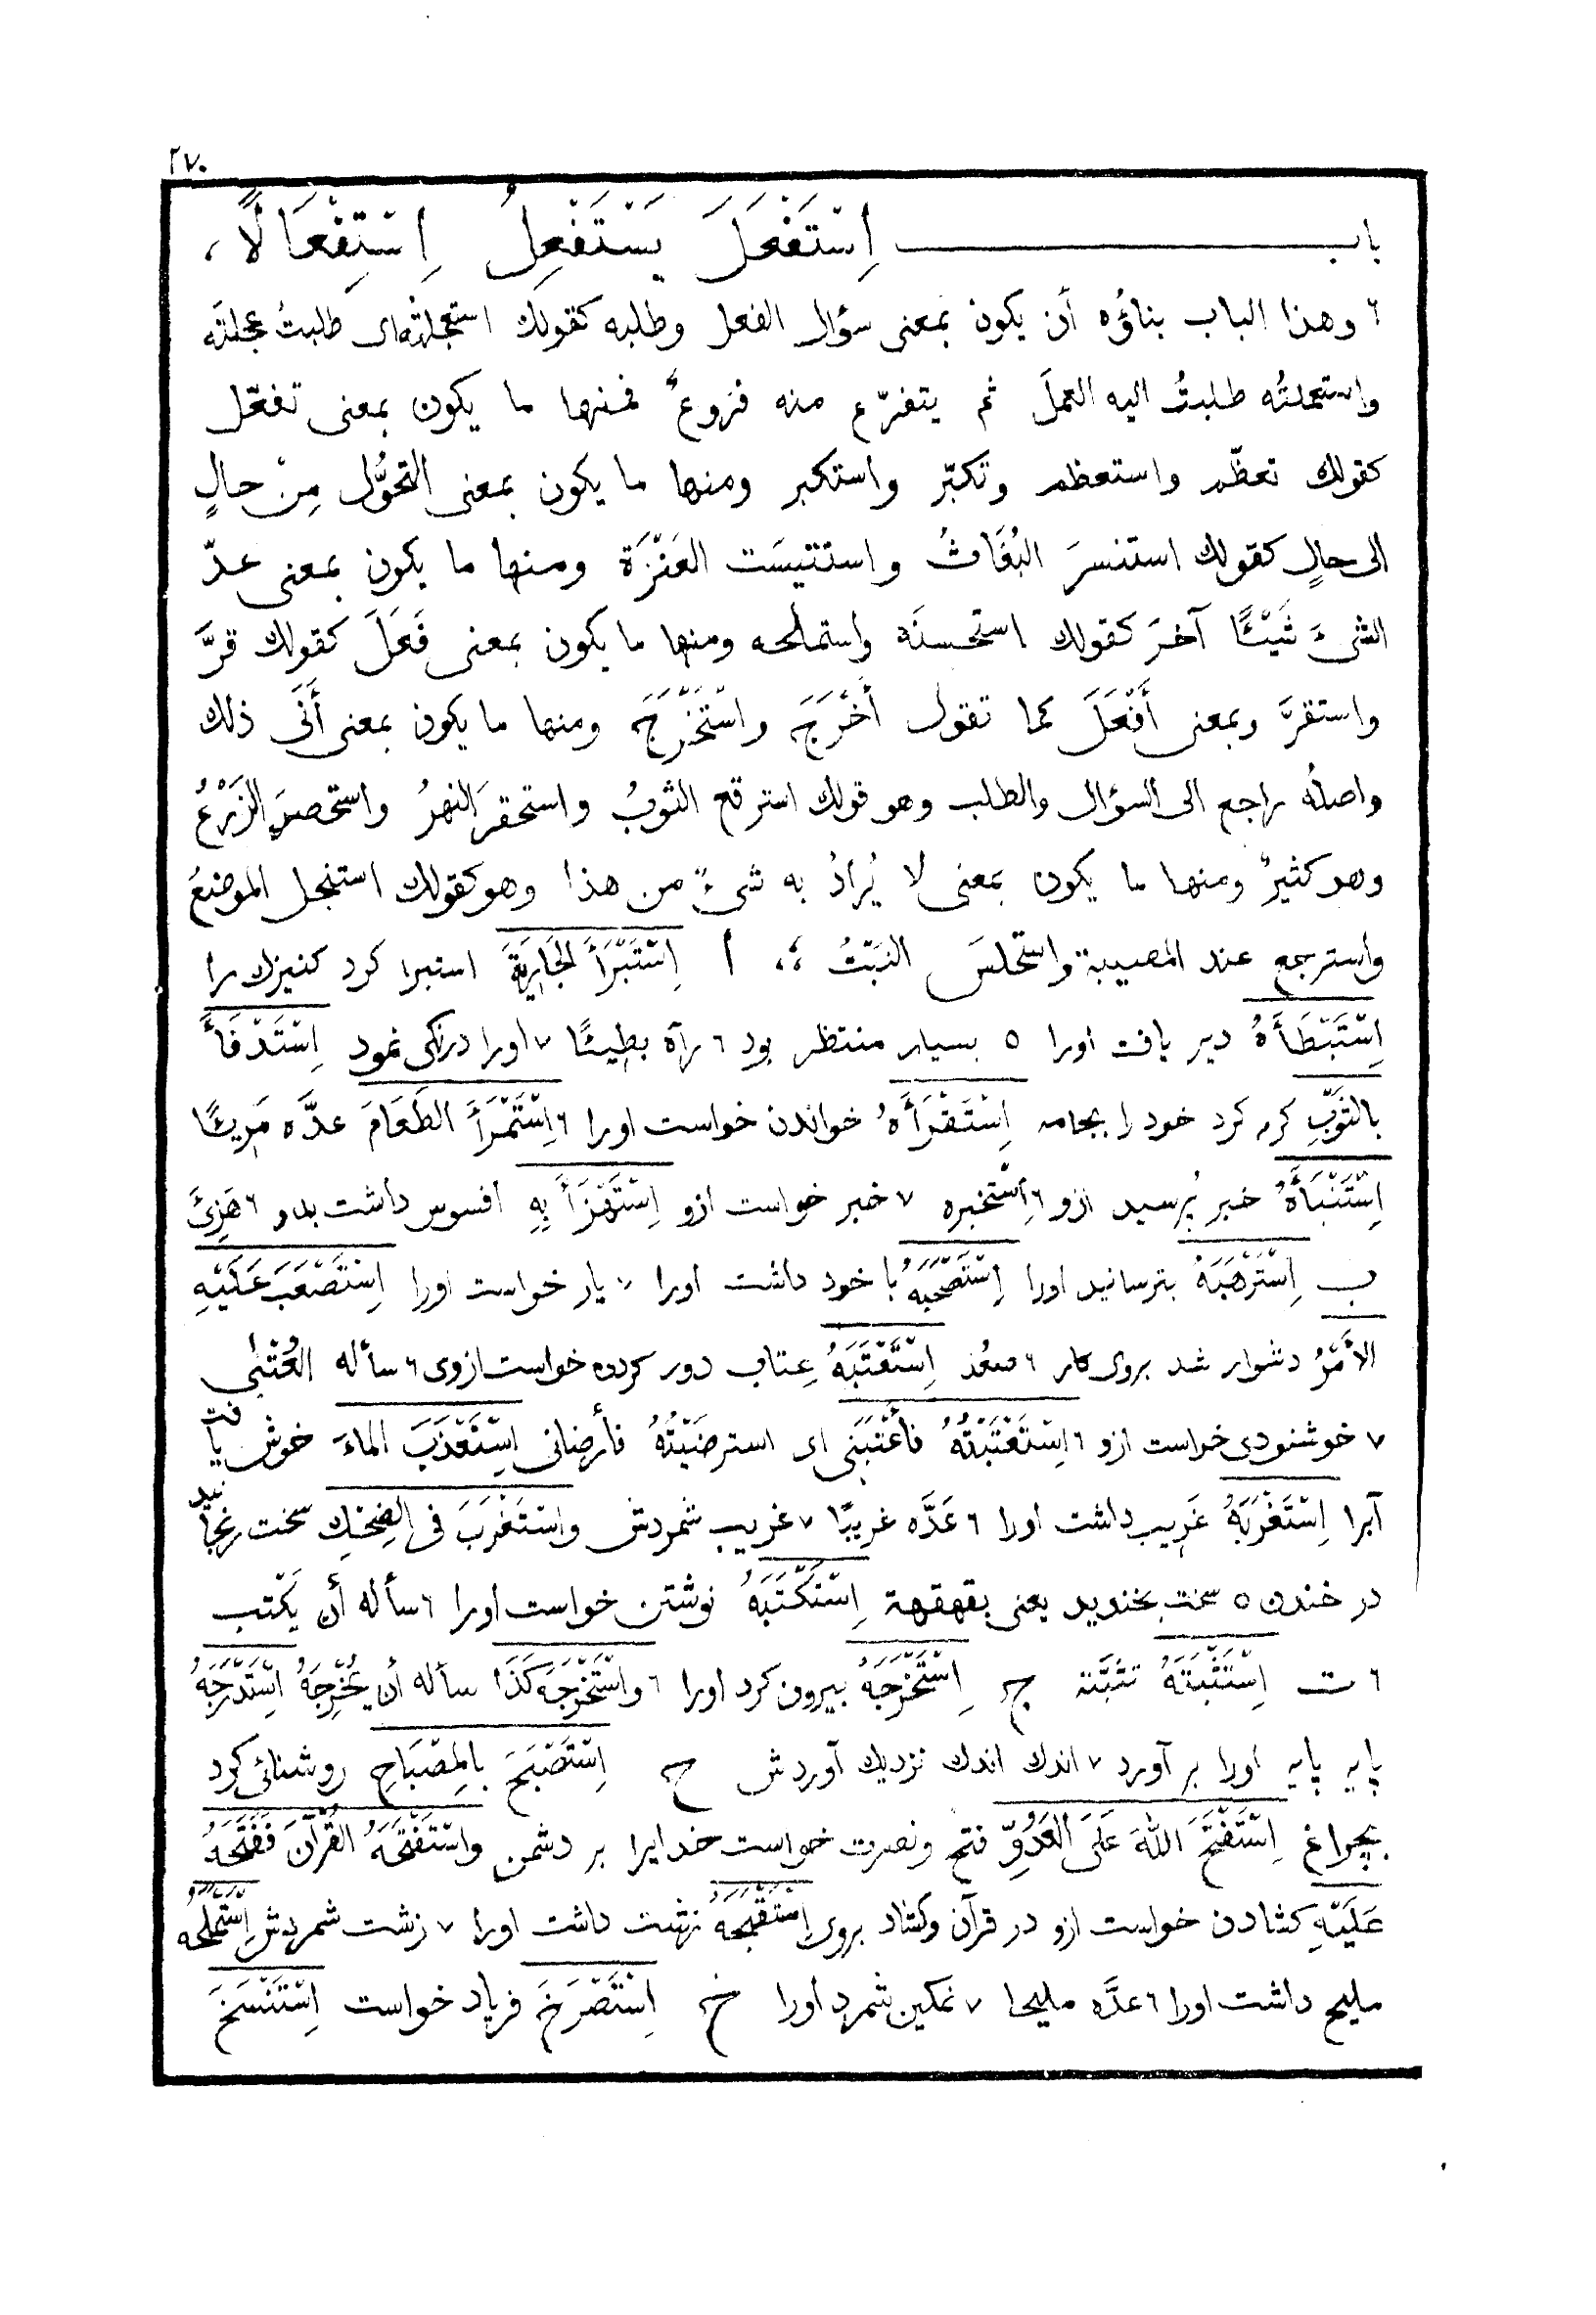 ٢٧٠
باب اِسْتَفْعَلَ يَسْتَفْعِلُ اِسْتِفْعَالًا ،
٦ وهذا الباب بناؤه أن يكون بمعنى سؤال الفعل وطلبه كقولك استعجلته‌اى طلبتُ عجلتَه
واستعملتُه طلبتُ اليه العملَ ثم يتفرّع منه فروعٌ فمنها ما يكون بمعنى تفعّل
كقولك تعظّم واستعظم وتكبّر واستكبر ومنها ما يكون بمعنى التحوُّل مِنْ حالٍ
الى حالٍ كقولك استنسرَ البُغَاثُ واستتيسَت العَنْزَة ومنها ما يكون بمعنى عدّ
الشىءَ شَيْئًا آخرَ كقولك استحسنَه واستملحه ومنها ما يكون بمعنى فَعَلَ كقولك قرَّ
واستقرَّ وبمعنى أَفْعَلَ كما تقول أَخْرَجَه واسْتَخْرَجَه ومنها ما يكون بمعنى أَنَى ذلك
واصلُه راجع الى السؤال والطلب وهو قولك استرقع الثوبُ واستحفرَ النهرُ واستحصدَ الزَرْعُ
وهو كثيرٌ ومنها ما يكون بمعنى لا يُرادُ به شىءٌ من هذا وهو كقولك استنجل الموضعُ
واسترجع عند المصيبة واستحلسَ النَبْتُ ؛، أ اِسْتَبْرَأَ الجَارِيَةَ استبرا كرد كنيزك را
اِسْتَبْطَأَهُ دير يافت اورا ٥ بسيار منتظر بود ٦ رآه بطيئًا ٧ اورا درنگى نمود اِسْتَدْفَأَ
بالثَوْبِ گرم كرد خود را بجامه اِسْتَقْرَأَهُ خواندن خواست اورا ٦ اِسْتَمْرَأَ الطَعَامَ عدَّه مَريئًا
اِسْتَنْبَأَهُ خبر پُرسيد ازو ٦ اِسْتخبره ٧ خبر خواست ازو اِسْتَهْزَأَ بِهِ افسوس داشت بدو ٦ هَزِئَ
ب اِسْتَرْهَبَهُ بترسانيد اورا اِسْتَصْحَبَهُ با خود داشت اورا ٧ يار خواست اورا اِسْتَصْعَبَ عَلَيْهِ
الأَمْرُ دشوار شد بروى كار ٦ صعُب اِسْتَعْتَبَهُ عِتاب دور كردن خواست ازوى ٦ سأله العُتْبٰى
٧ خوشنودى خواست ازو ٦ اِسْتَعْتَبْتُهُ فأَعْتَبَنى اى استرضَيْتُهُ فأرضانى اِسْتَعْذَبَ الماءَ خوش يافت
آبرا اِسْتَغْرَبَهُ غَريب داشت اورا ٦ عَدَّه غريبًا ٧ غريب شمردش واسْتَغْرَبَ فى الضِحْكِ سخت رنجانيد
در خندن ٥ سخت بخنديد يعنى بقهقهة اِسْتَكْتَبَهُ نوشتن خواست اورا ٦ سأله أن يَكْتب
٦ ت اِسْتَثْبَتَهُ تثبَّته ج اِسْتَخْرَجَهُ بيرون كرد اورا ٦ واسْتَخْرَجَه كَذَا سأله أن يُخْرِجَهُ اِسْتَدْرَجَهُ
پايه پايه اورا بر آورد ٧ اندك اندك نزديك آوردش ح اِسْتَصْبَحَ بِالمِصْبَاحِ روشنائى كرد
بچراغ اِسْتَفْتَحَ اللهَ عَلَى العَدُوِّ فتح ونصرت خواست خدايرا بر دشمن واسْتَفْتَحَهُ القُرْآنَ فَفَتَحَهُ
عَلَيْهِ كشادن خواست ازو در قرآن وكشاد بروى اِسْتَقْبَحَهُ زشت داشت اورا ٧ زشت شمردش اِسْتَمْلَحَهُ
مليح داشت اورا ٦ عدَّه مليحا ٧ نمكين شمرد اورا خ اِسْتَصْرَخَ فرياد خواست اِسْتَنْسَخَ